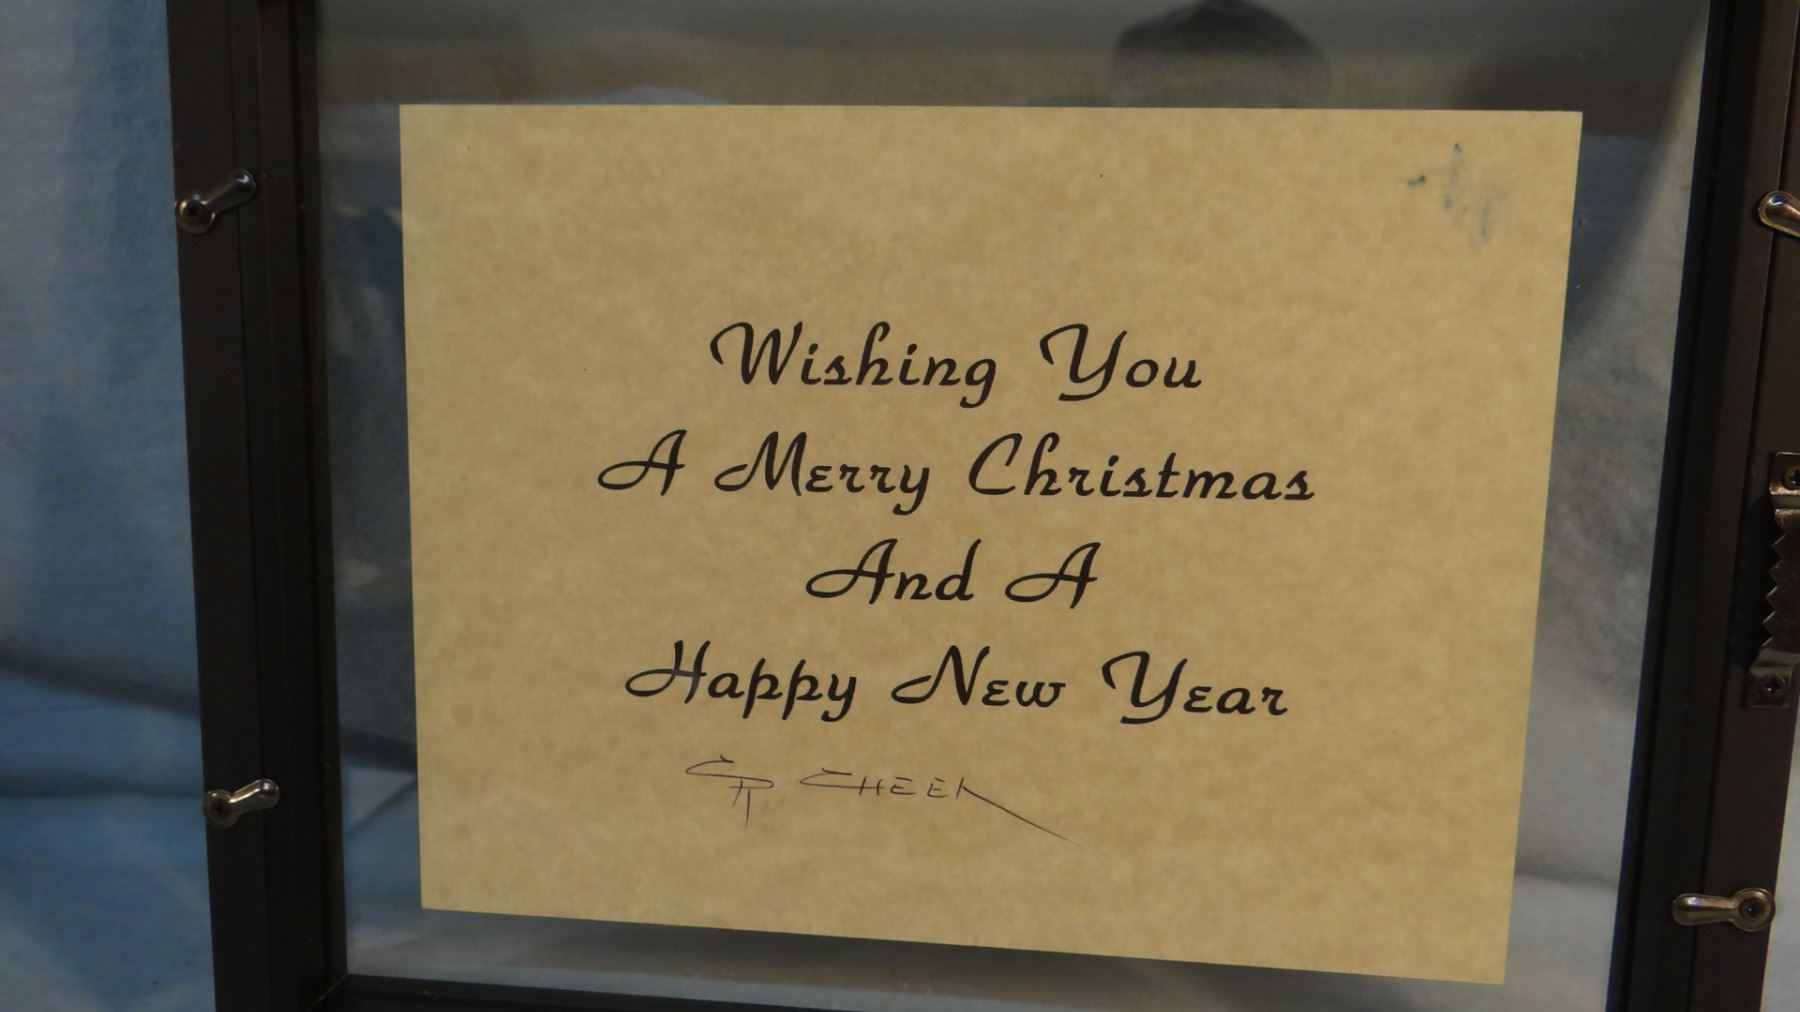 Wishing You
A Merry Christmas
And A
Happy New Year
CR CHEEK